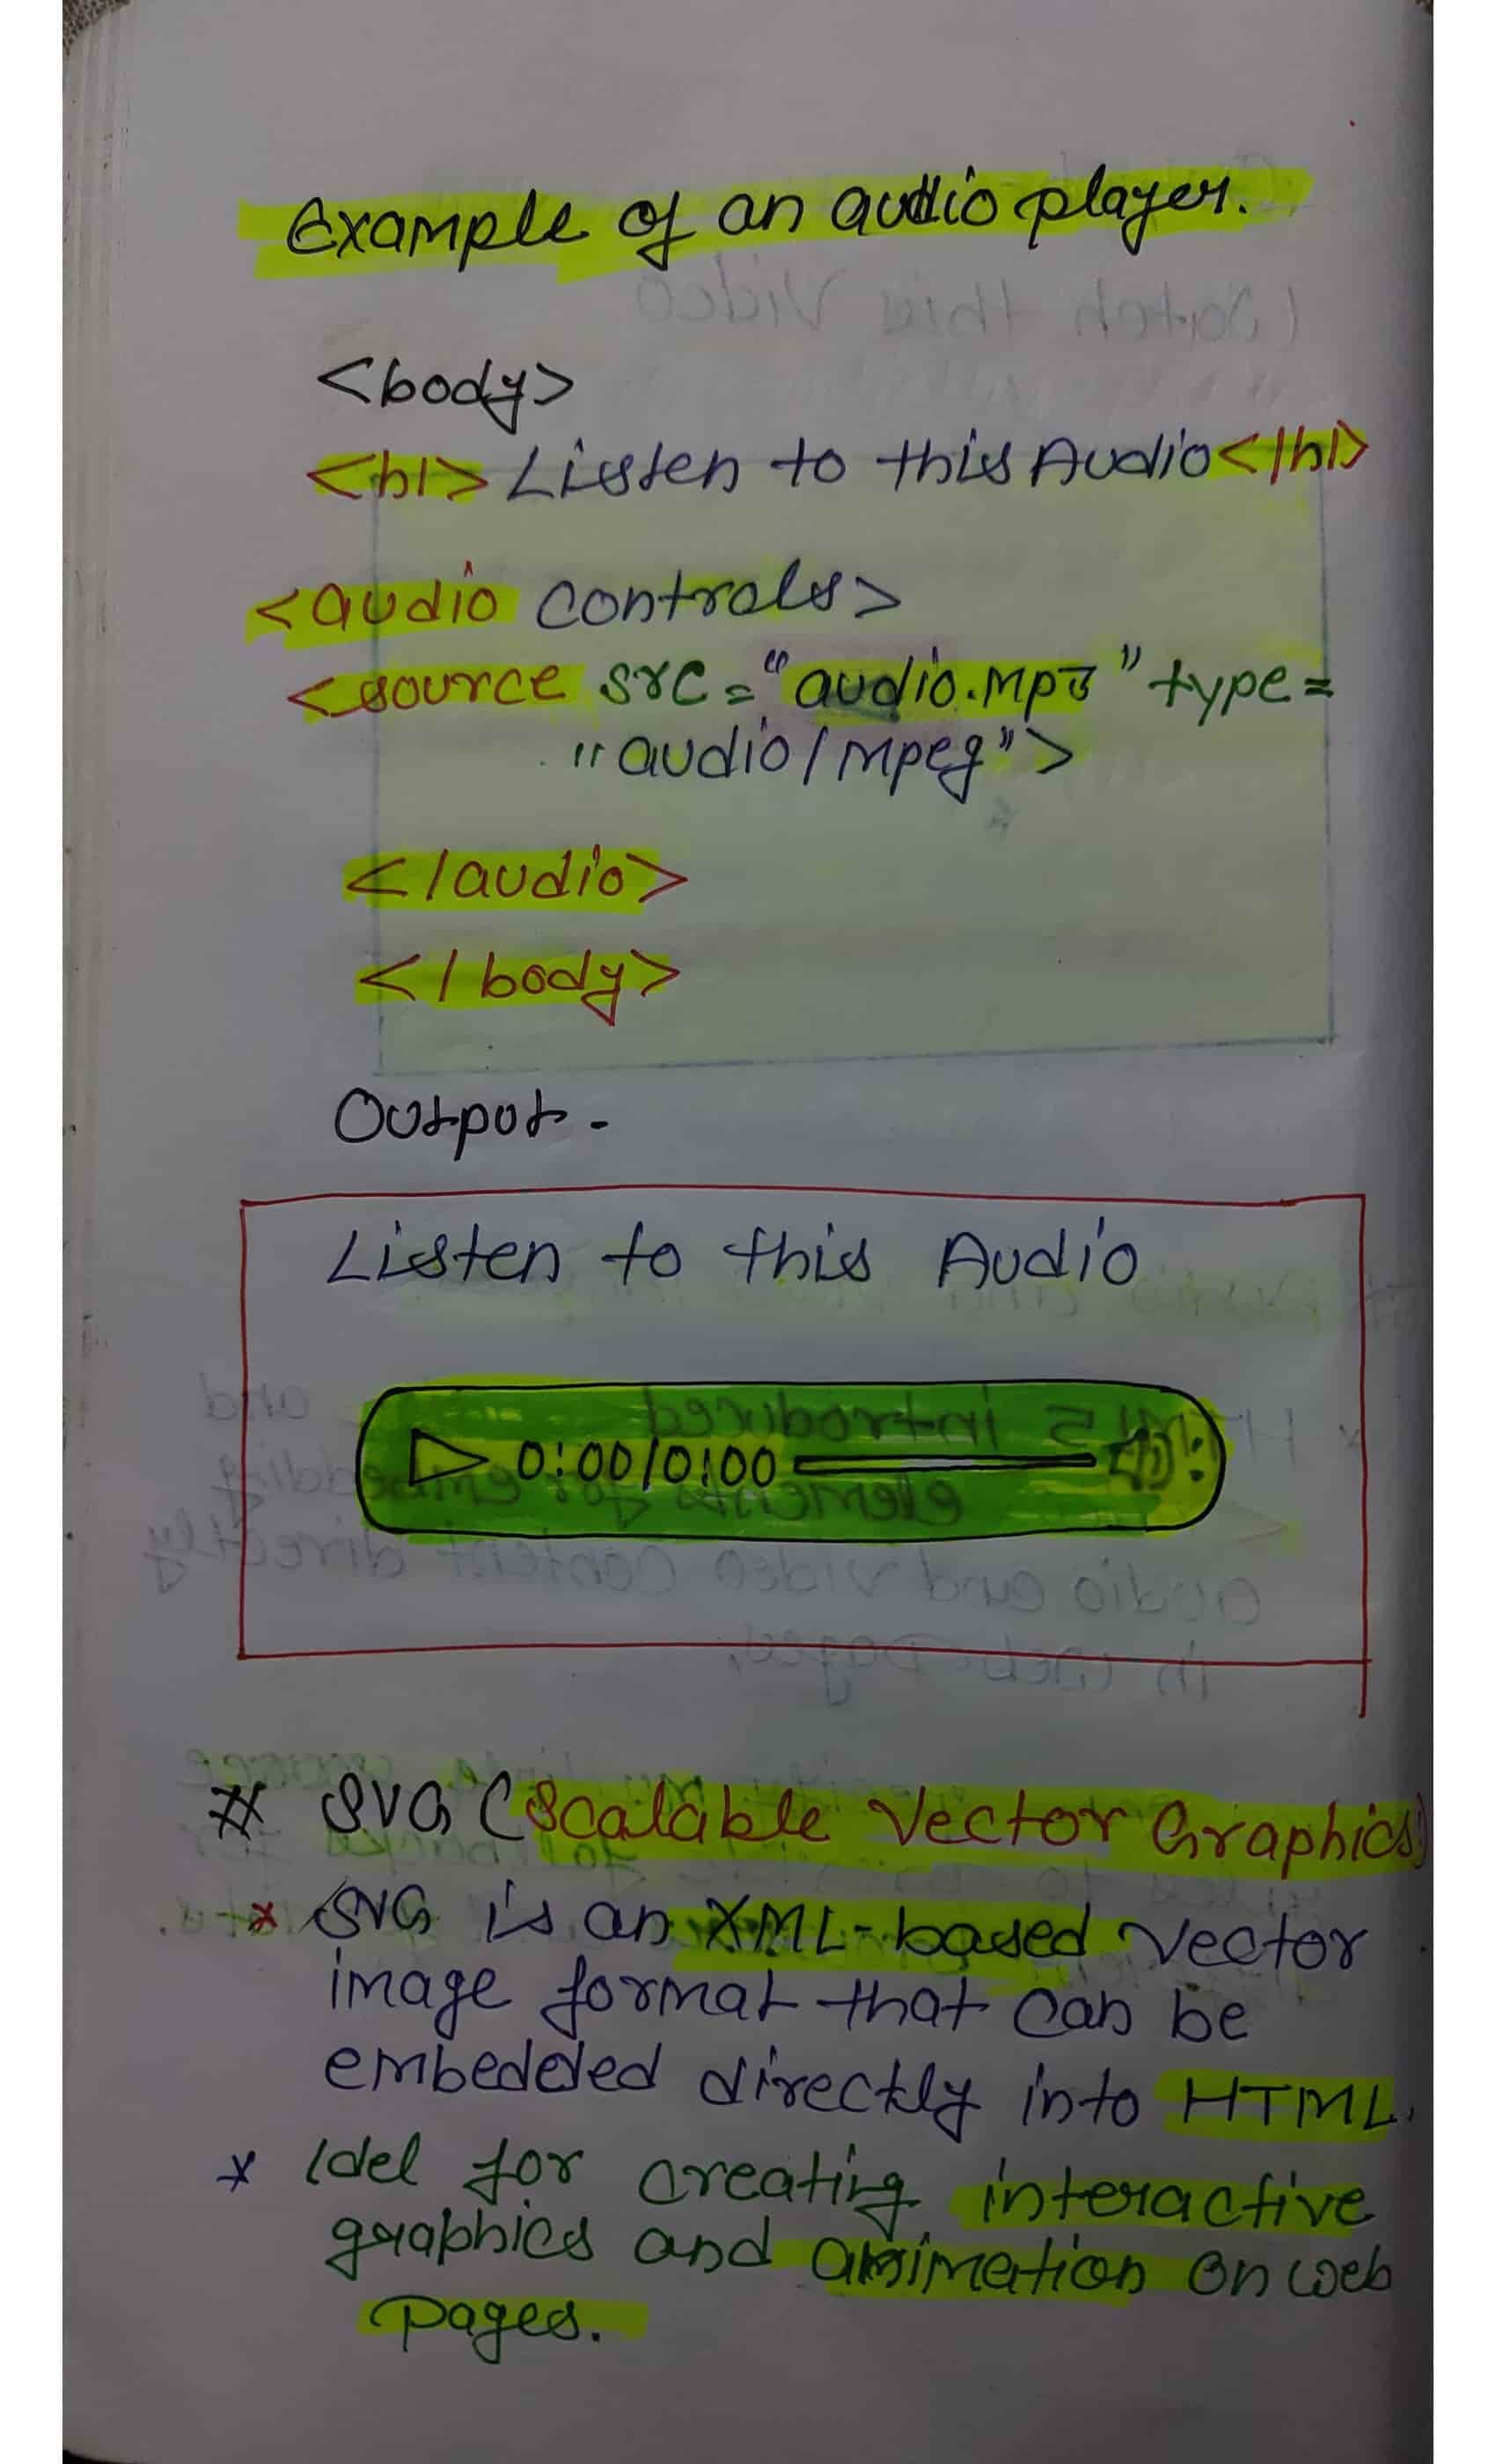 Example of an audio player.
<body>
<h1> Listen to this Audio</h1>
<audio controls>
<source src="audio.mp3" type=
"audio/mpeg">
</audio>
</body>
Output-
Listen to this Audio
0:00/0:00
# SVG (Scalable Vector Graphics)
* SVG is an XML-based Vector
image format that can be
embedded directly into HTML.
* Idel for creating interactive
graphics and animation on web
pages.